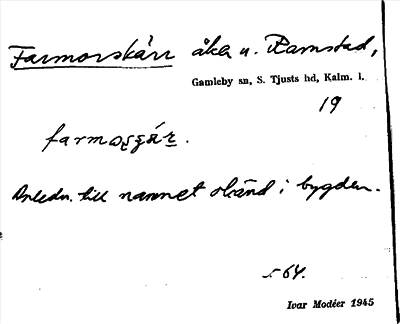 Farmorskärr åker u. Ramstad,
Gamleby sn, S. Tjusts hd, Kalm. l.
19
farmosʂɛ́r.
Anledn. till namnet okänd i bygden.
s 64.
Ivar Modéer 1945